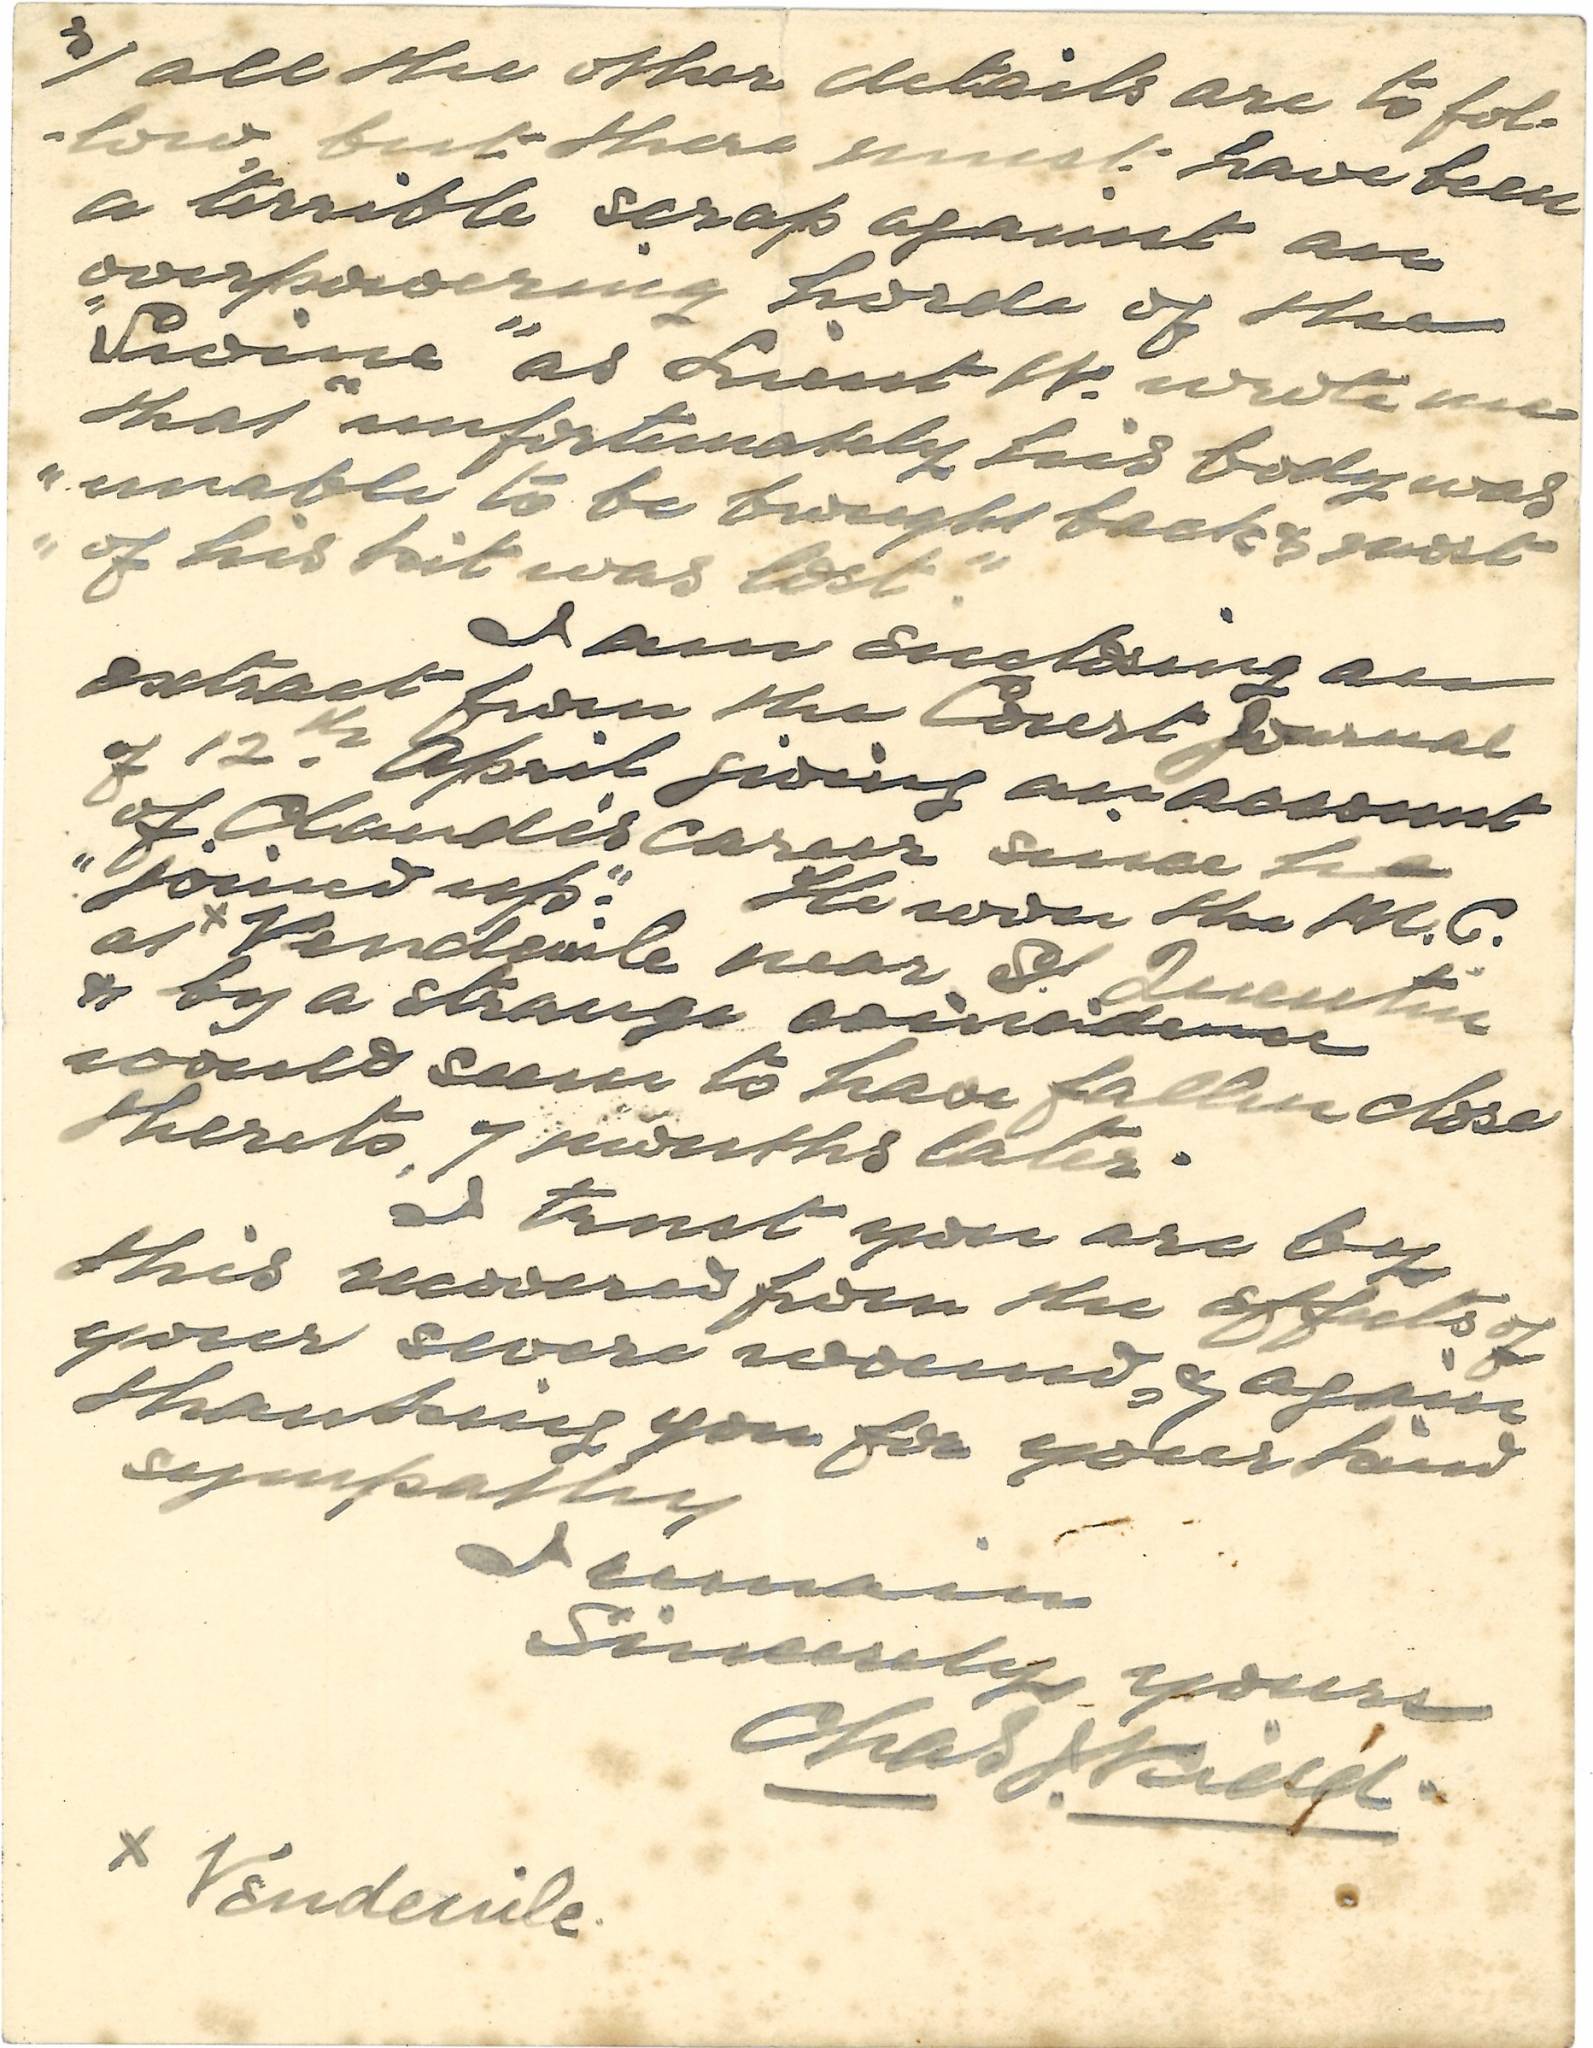 3/ all the other details are to fol-
-low, but there must have been
a terrible scrap against an
overpowering horde of the
"Swine" as Lieut H. wrote me
that "unfortunately his body was
"unable to be brought back & most
"of his kit was lost."
I am enclosing an
extract from the Court Journal
of 12th April giving an account
of Claude's career since he
"joined up." He won the M.C.
at x Vendeuile near St Quentin
& by a strange coincidence
would seem to have fallen close
thereto, 7 months later.
I trust you are by
this recovered from the effects of
your severe wound, & again
thanking you for your kind
sympathy
I remain
Sincerely yours
Chas J.
x Vendeuile.